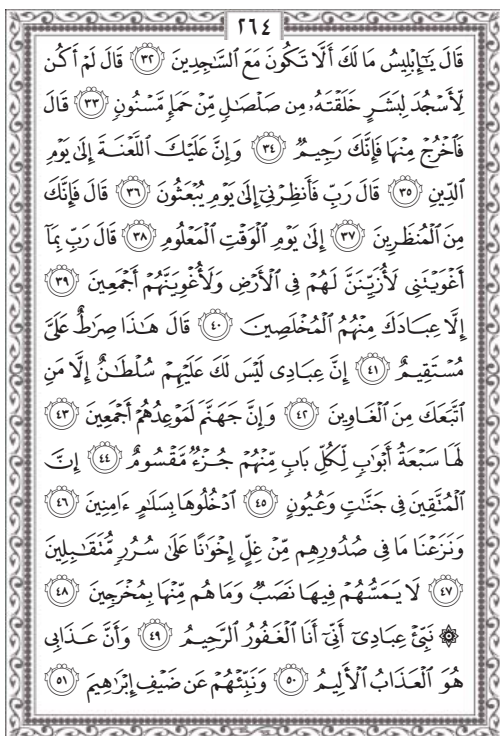 ٢٦٤
قَالَ يَـٰٓإِبْلِيسُ مَا لَكَ أَلَّا تَكُونَ مَعَ ٱلسَّـٰجِدِينَ ٣٢ قَالَ لَمْ أَكُن
لِّأَسْجُدَ لِبَشَرٍ خَلَقْتَهُۥ مِن صَلْصَـٰلٍ مِّنْ حَمَإٍ مَّسْنُونٍ ٣٣ قَالَ
فَٱخْرُجْ مِنْهَا فَإِنَّكَ رَجِيمٌ ٣٤ وَإِنَّ عَلَيْكَ ٱللَّعْنَةَ إِلَىٰ يَوْمِ
ٱلدِّينِ ٣٥ قَالَ رَبِّ فَأَنظِرْنِىٓ إِلَىٰ يَوْمِ يُبْعَثُونَ ٣٦ قَالَ فَإِنَّكَ
مِنَ ٱلْمُنظَرِينَ ٣٧ إِلَىٰ يَوْمِ ٱلْوَقْتِ ٱلْمَعْلُومِ ٣٨ قَالَ رَبِّ بِمَآ
أَغْوَيْتَنِى لَأُزَيِّنَنَّ لَهُمْ فِى ٱلْأَرْضِ وَلَأُغْوِيَنَّهُمْ أَجْمَعِينَ ٣٩
إِلَّا عِبَادَكَ مِنْهُمُ ٱلْمُخْلَصِينَ ٤٠ قَالَ هَـٰذَا صِرَٰطٌ عَلَىَّ
مُسْتَقِيمٌ ٤١ إِنَّ عِبَادِى لَيْسَ لَكَ عَلَيْهِمْ سُلْطَـٰنٌ إِلَّا مَنِ
ٱتَّبَعَكَ مِنَ ٱلْغَاوِينَ ٤٢ وَإِنَّ جَهَنَّمَ لَمَوْعِدُهُمْ أَجْمَعِينَ ٤٣
لَهَا سَبْعَةُ أَبْوَٰبٍ لِّكُلِّ بَابٍ مِّنْهُمْ جُزْءٌ مَّقْسُومٌ ٤٤ إِنَّ
ٱلْمُتَّقِينَ فِى جَنَّـٰتٍ وَعُيُونٍ ٤٥ ٱدْخُلُوهَا بِسَلَـٰمٍ ءَامِنِينَ ٤٦
وَنَزَعْنَا مَا فِى صُدُورِهِم مِّنْ غِلٍّ إِخْوَٰنًا عَلَىٰ سُرُرٍ مُّتَقَـٰبِلِينَ
٤٧ لَا يَمَسُّهُمْ فِيهَا نَصَبٌ وَمَا هُم مِّنْهَا بِمُخْرَجِينَ ٤٨
۞ نَبِّئْ عِبَادِىٓ أَنِّىٓ أَنَا ٱلْغَفُورُ ٱلرَّحِيمُ ٤٩ وَأَنَّ عَذَابِى
هُوَ ٱلْعَذَابُ ٱلْأَلِيمُ ٥٠ وَنَبِّئْهُمْ عَن ضَيْفِ إِبْرَٰهِيمَ ٥١